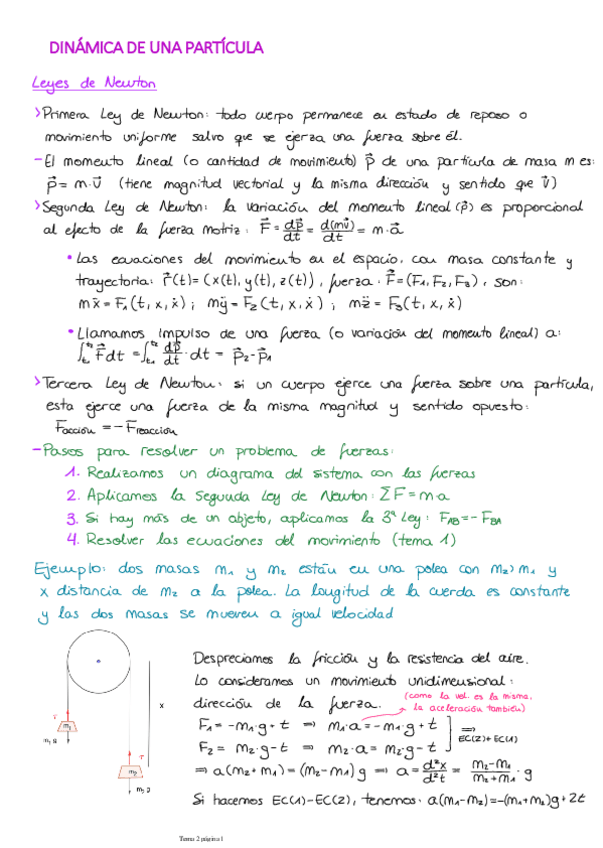 DINÁMICA DE UNA PARTÍCULA
Leyes de Newton
>Primera Ley de Newton: todo cuerpo permanece en estado de reposo o
movimiento uniforme salvo que se ejerza una fuerza sobre él.
-El momento lineal (o cantidad de movimiento) p⃗ de una partícula de masa m es:
p⃗ = m·v⃗ (tiene magnitud vectorial y la misma dirección y sentido que v⃗)
>Segunda Ley de Newton: la variación del momento lineal (p⃗) es proporcional
al efecto de la fuerza motriz: F⃗ = dp⃗/dt = d(mv⃗)/dt = m·a⃗
• Las ecuaciones del movimiento en el espacio, con masa constante y
trayectoria: r⃗(t)= (x(t), y(t), z(t)), fuerza: F⃗=(F₁, F₂, F₃), son:
mẍ = F₁(t, x, ẋ) ; mÿ = F₂(t, x, ẋ) ; mz̈ = F₃(t, x, ẋ)
• Llamamos impulso de una fuerza (o variación del momento lineal) a:
∫ₜ₁ᵗ² F⃗dt = ∫ₜ₁ᵗ² dp⃗/dt · dt = p⃗₂-p⃗₁
>Tercera Ley de Newton: si un cuerpo ejerce una fuerza sobre una partícula,
esta ejerce una fuerza de la misma magnitud y sentido opuesto:
Facción = -Freacción
-Pasos para resolver un problema de fuerzas:
1. Realizamos un diagrama del sistema con las fuerzas
2. Aplicamos la Segunda Ley de Newton: ΣF = m·a
3. Si hay más de un objeto, aplicamos la 3ª Ley: F_AB = -F_BA
4. Resolver las ecuaciones del movimiento (tema 1)
Ejemplo: dos masas m₁ y m₂ están en una polea con m₂>m₁ y
x distancia de m₂ a la polea. La longitud de la cuerda es constante
y las dos masas se mueven a igual velocidad
Despreciamos la fricción y la resistencia del aire.
Lo consideramos un movimiento unidimensional:
dirección de la fuerza.
(como la vel. es la misma,
la aceleración también)
F₁ = -m₁·g + t ⇒ m₁·a = -m₁·g + t
F₂ = m₂·g - t ⇒ m₂·a = m₂·g - t
⇒
EC(2)+EC(1)
⇒ a(m₂+m₁) = (m₂-m₁)g ⇒ a = d²x/d²t = m₂-m₁/m₂+m₁ · g
Si hacemos EC(1)-EC(2), tenemos: a(m₁-m₂)=-(m₁+m₂)g+2t
T
m₁
m₁ g
x
T
m₂
m₂ g
Tema 2 página 1